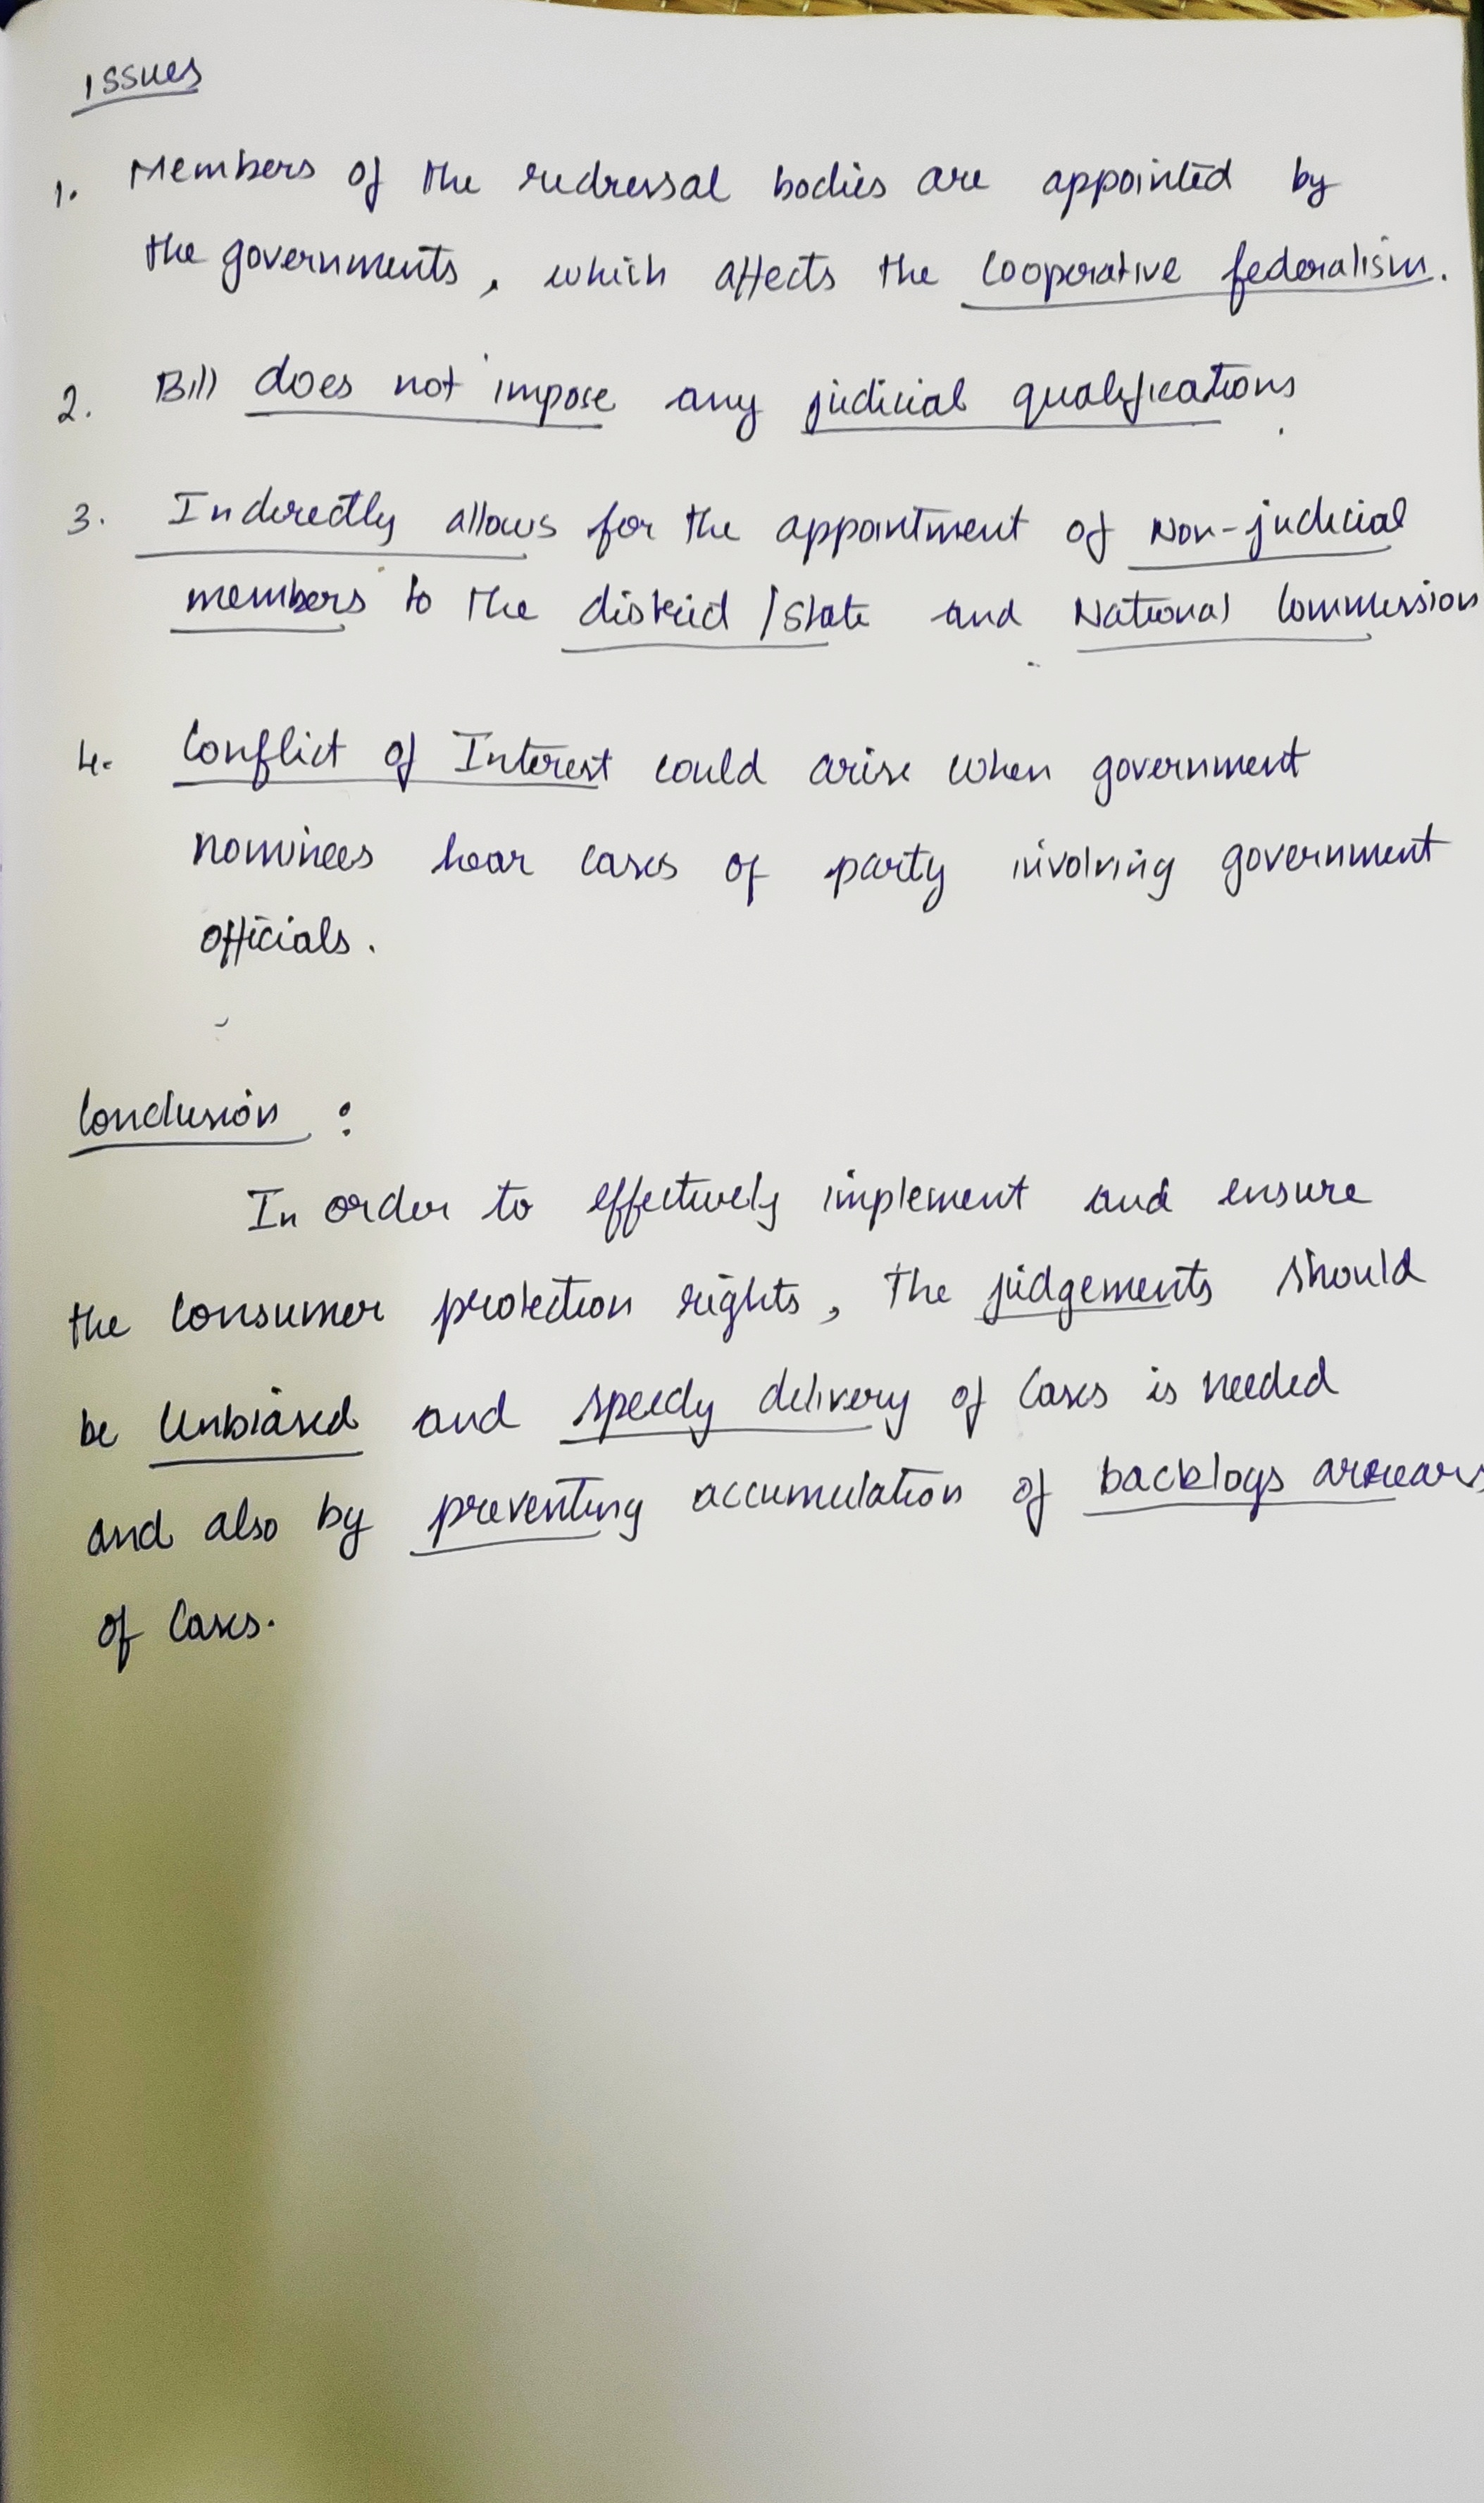 Issues
1. Members of the redressal bodies are appointed by
the governments, which affects the cooperative federalism.
2. Bill does not impose any judicial qualifications.
3. Indirectly allows for the appointment of Non-judicial
members to the district / State and National Commission
4. Conflict of Interest could arise when government
nominees hear cases of party involving government
officials.
Conclusion :
In order to effectively implement and ensure
the consumer protection rights, the judgements should
be Unbiased and speedy delivery of cases is needed
and also by preventing accumulation of backlogs arrears
of cases.